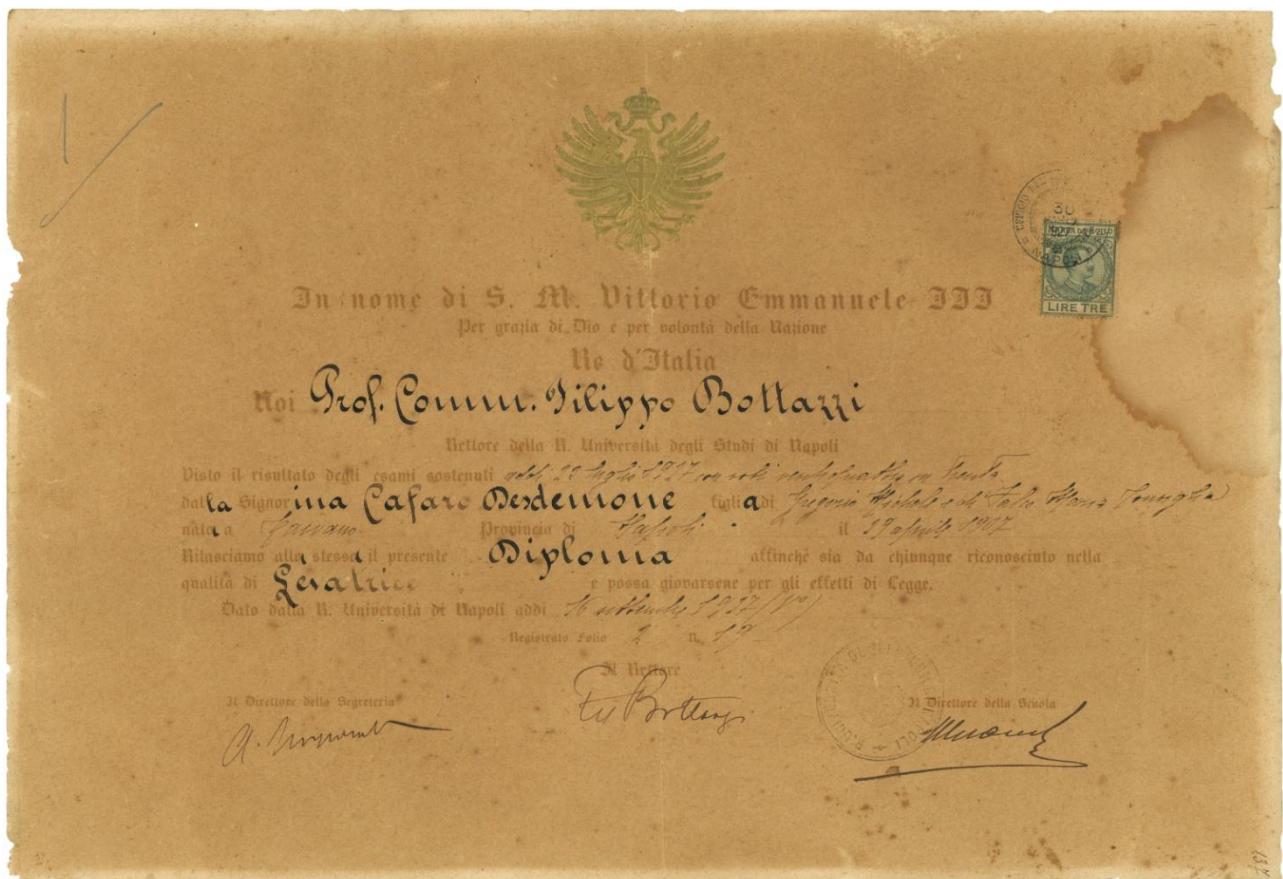 1
In nome di S. M. Vittorio Emmanuele III
Per grazia di Dio e per volontà della Nazione
Re d'Italia
Noi Prof. Comm. Filippo Bottazzi
Rettore della R. Università degli Studi di Napoli
Visto il risultato degli esami sostenuti addì 22 luglio 1927 con voti ventiquattro su trenta
dalla Signorina Cafaro Desdemone figlia di Gregorio Michele e di
nata a Provincia di Napoli il 29 aprile
Rilasciamo alla stessa il presente Diploma affinchè sia da chiunque riconosciuto nella
qualità di Levatrice e possa giovarsene per gli effetti di Legge.
Dato dalla R. Università di Napoli addì 16 settembre 1927 (V°)
Registrato Folio 2 n. 19
Il Rettore
Il Direttore della Segreteria
Il Direttore della Scuola
Fil Bottazzi
30
NAPOLI
MARCA DA BOLLO
LIRE TRE